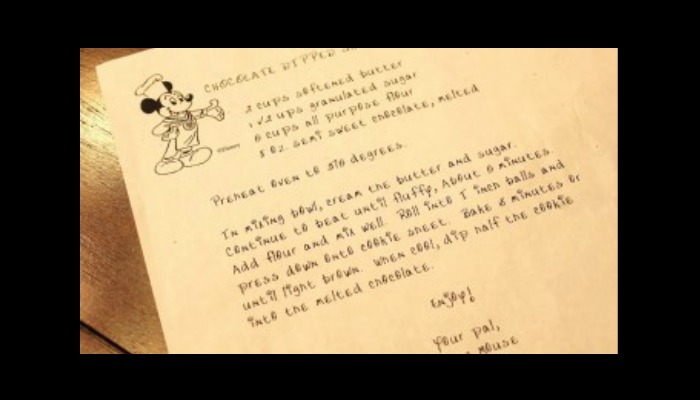 CHOCOLATE DIPPED
2 cups softened butter
1 1/2 cups granulated sugar
6 cups all purpose flour
8 oz. semi sweet chocolate, melted
©Disney
Preheat oven to 310 degrees.
In mixing bowl, cream the butter and sugar.
Continue to beat until fluffy, About 6 minutes.
Add flour and mix well. Roll into 1 inch balls and
press down onto cookie sheet. Bake 8 minutes or
until light brown. When cool, dip half the cookie
into the melted chocolate.
Enjoy!
Your pal,
Mouse